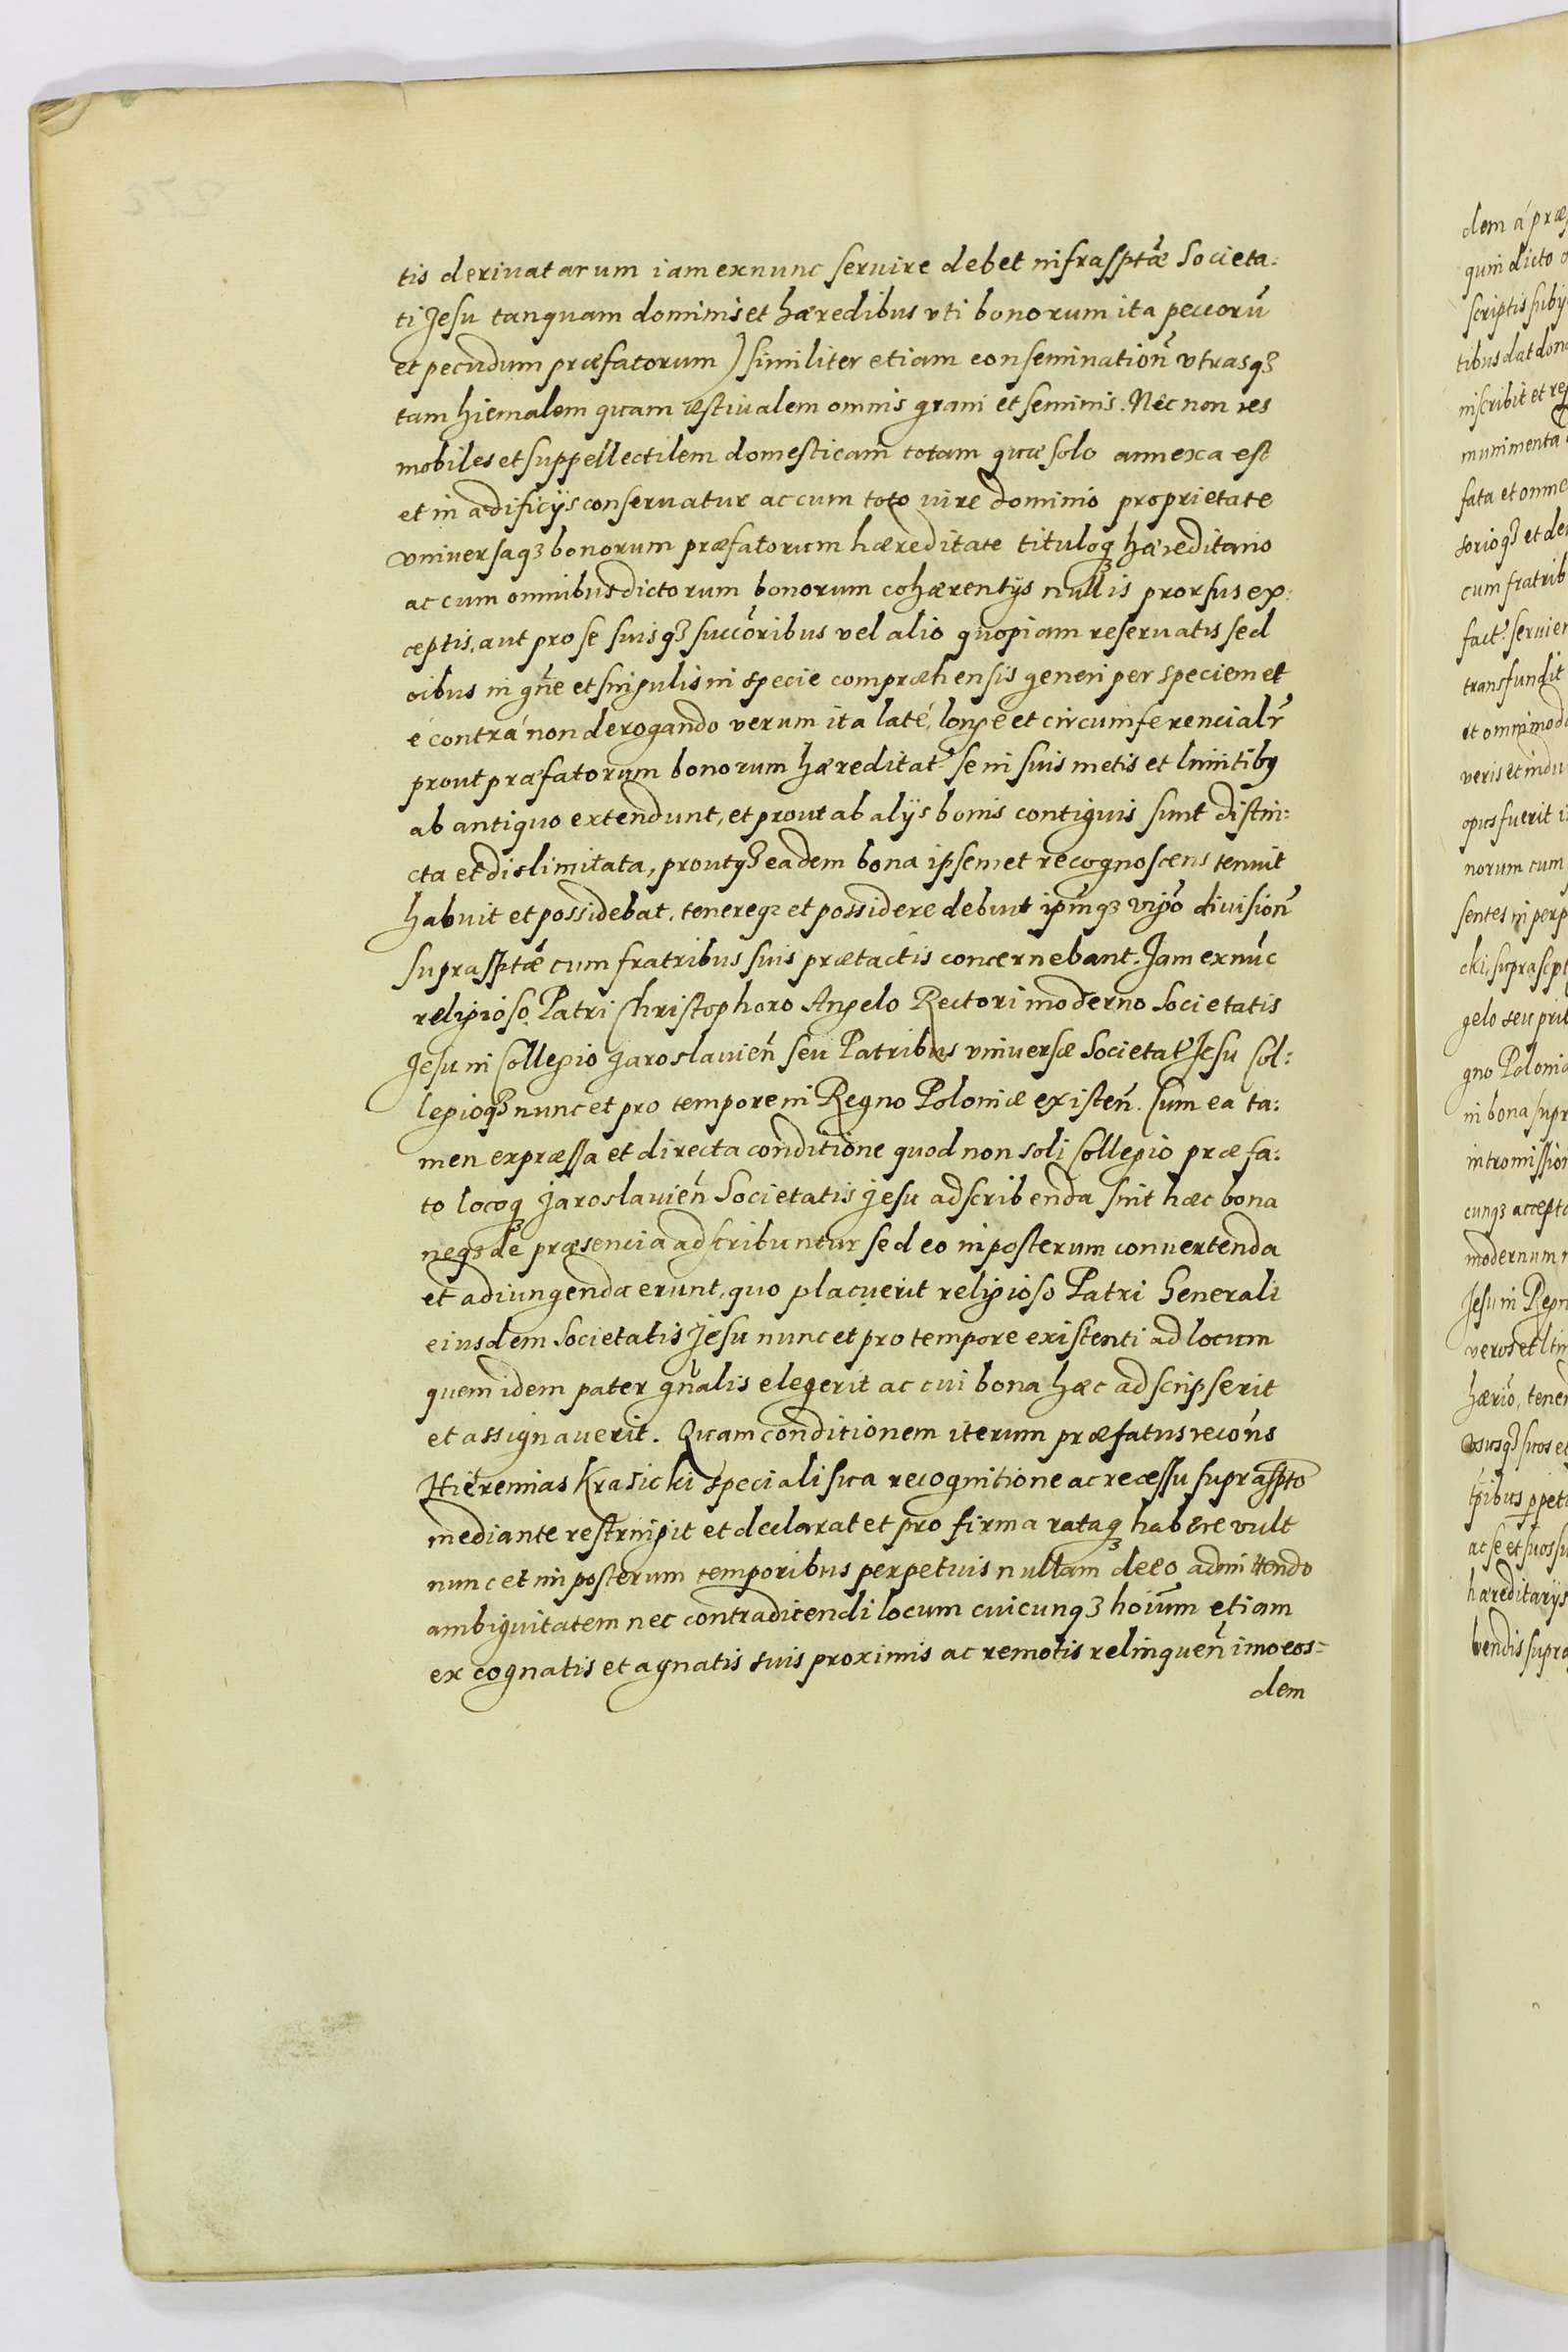 tis deriuatarum iam exnunc seruire debet infrassptæ Societa:
ti Jesu tanquam dominis et hæredibus vti bonorum ita peccorũ
et pecudum præfatorum) similiter etiam conseminationẽ vtrasqȝ
tam hiemalem quam æstiualem omnis grani et seminis. Nec non res
mobiles et suppellectilem domesticam totam quæ solo annexa est
et in ædificijs conseruatur ac cum toto iure dominio proprietate
vniversaqȝ bonorum præfatorum hæreditate tituloqȝ hæreditario
ac cum omnibus dictorum bonorum cohærentijs nullis prorsus ex:
ceptis, aut pro se suisqȝ succõribus vel alio quopiam reseruatis sed
oibus in gñe et singulis in specie compræhensis generi per speciem et
é contrá non derogando verum ita laté, longe et circumferencialr̃
prout præfatorum bonorum hæreditat. se in suis metis et limitibꝰ
ab antiquo extendunt, et prout ab alijs bonis contiguis sunt distin:
cta et dislimitata, proutqȝ eadem bona ipsemet recognoscens tenuit
habuit et possidebat, tenereqȝ et possidere debuit ipm̃qȝ vigõ diuisionẽ
suprassptæ cum fratribus suis prætactis concernebant. Jam exnũc
religioso Patri Christophoro Angelo Rectori moderno Societatis
Jesu in Collegio Jaroslauieñ seu Patribus vniversæ Societat. Jesu Col:
legioqȝ nunc et pro tempore in Regno Poloniæ existeñ. Cum ea ta:
men expræssa et directa conditione quod non soli Collegio præfa:
to locoqȝ Jaroslauieñ Societatis Jesu adscribenda sint hæc bona
neqȝ de præsencia adscribuntur sed eo inposterum conuertenda
et adiungenda erunt, quo placuerit religioso Patri Generali
eiusdem Societatis Jesu nunc et pro tempore existenti ad locum
quem idem pater gñalis elegerit ac cui bona hæc adscripserit
et assignauerit. Quam conditionem iterum præfatus recoñs
Hieremias Krasicki speciali sua recognitione ac recæssu suprasspto
mediante restringit et declarat et pro firma rataqȝ habere vult
nunc et in posterum temporibus perpetuis nullam de eo admittendo
ambiguitatem nec contradicendi locum cuicunqȝ hoium̃ etiam
ex cognatis et agnatis suis proximis ac remotis relinqueñ imo eos=
dem
dem á præ
quin dicto
scriptis subij
tibus dat dona
inscribit et re
munimenta
fata et omne
sorioqȝ et de
cum fratrib
fact. seruien
transfundit
et omnimod
veris et indu
opus fuerit
norum cum
sentes in perp
cki, suprascpt
gelo seu pr
gno Polonia
in bona supr
intromission
cunqȝ accept
modernum
Jesu in Regn
veros et ltim
hæriõ, tenen
vsusqȝ suos et
tpibus ppetu
ac se et suos su
hæreditarijs
bendis supra